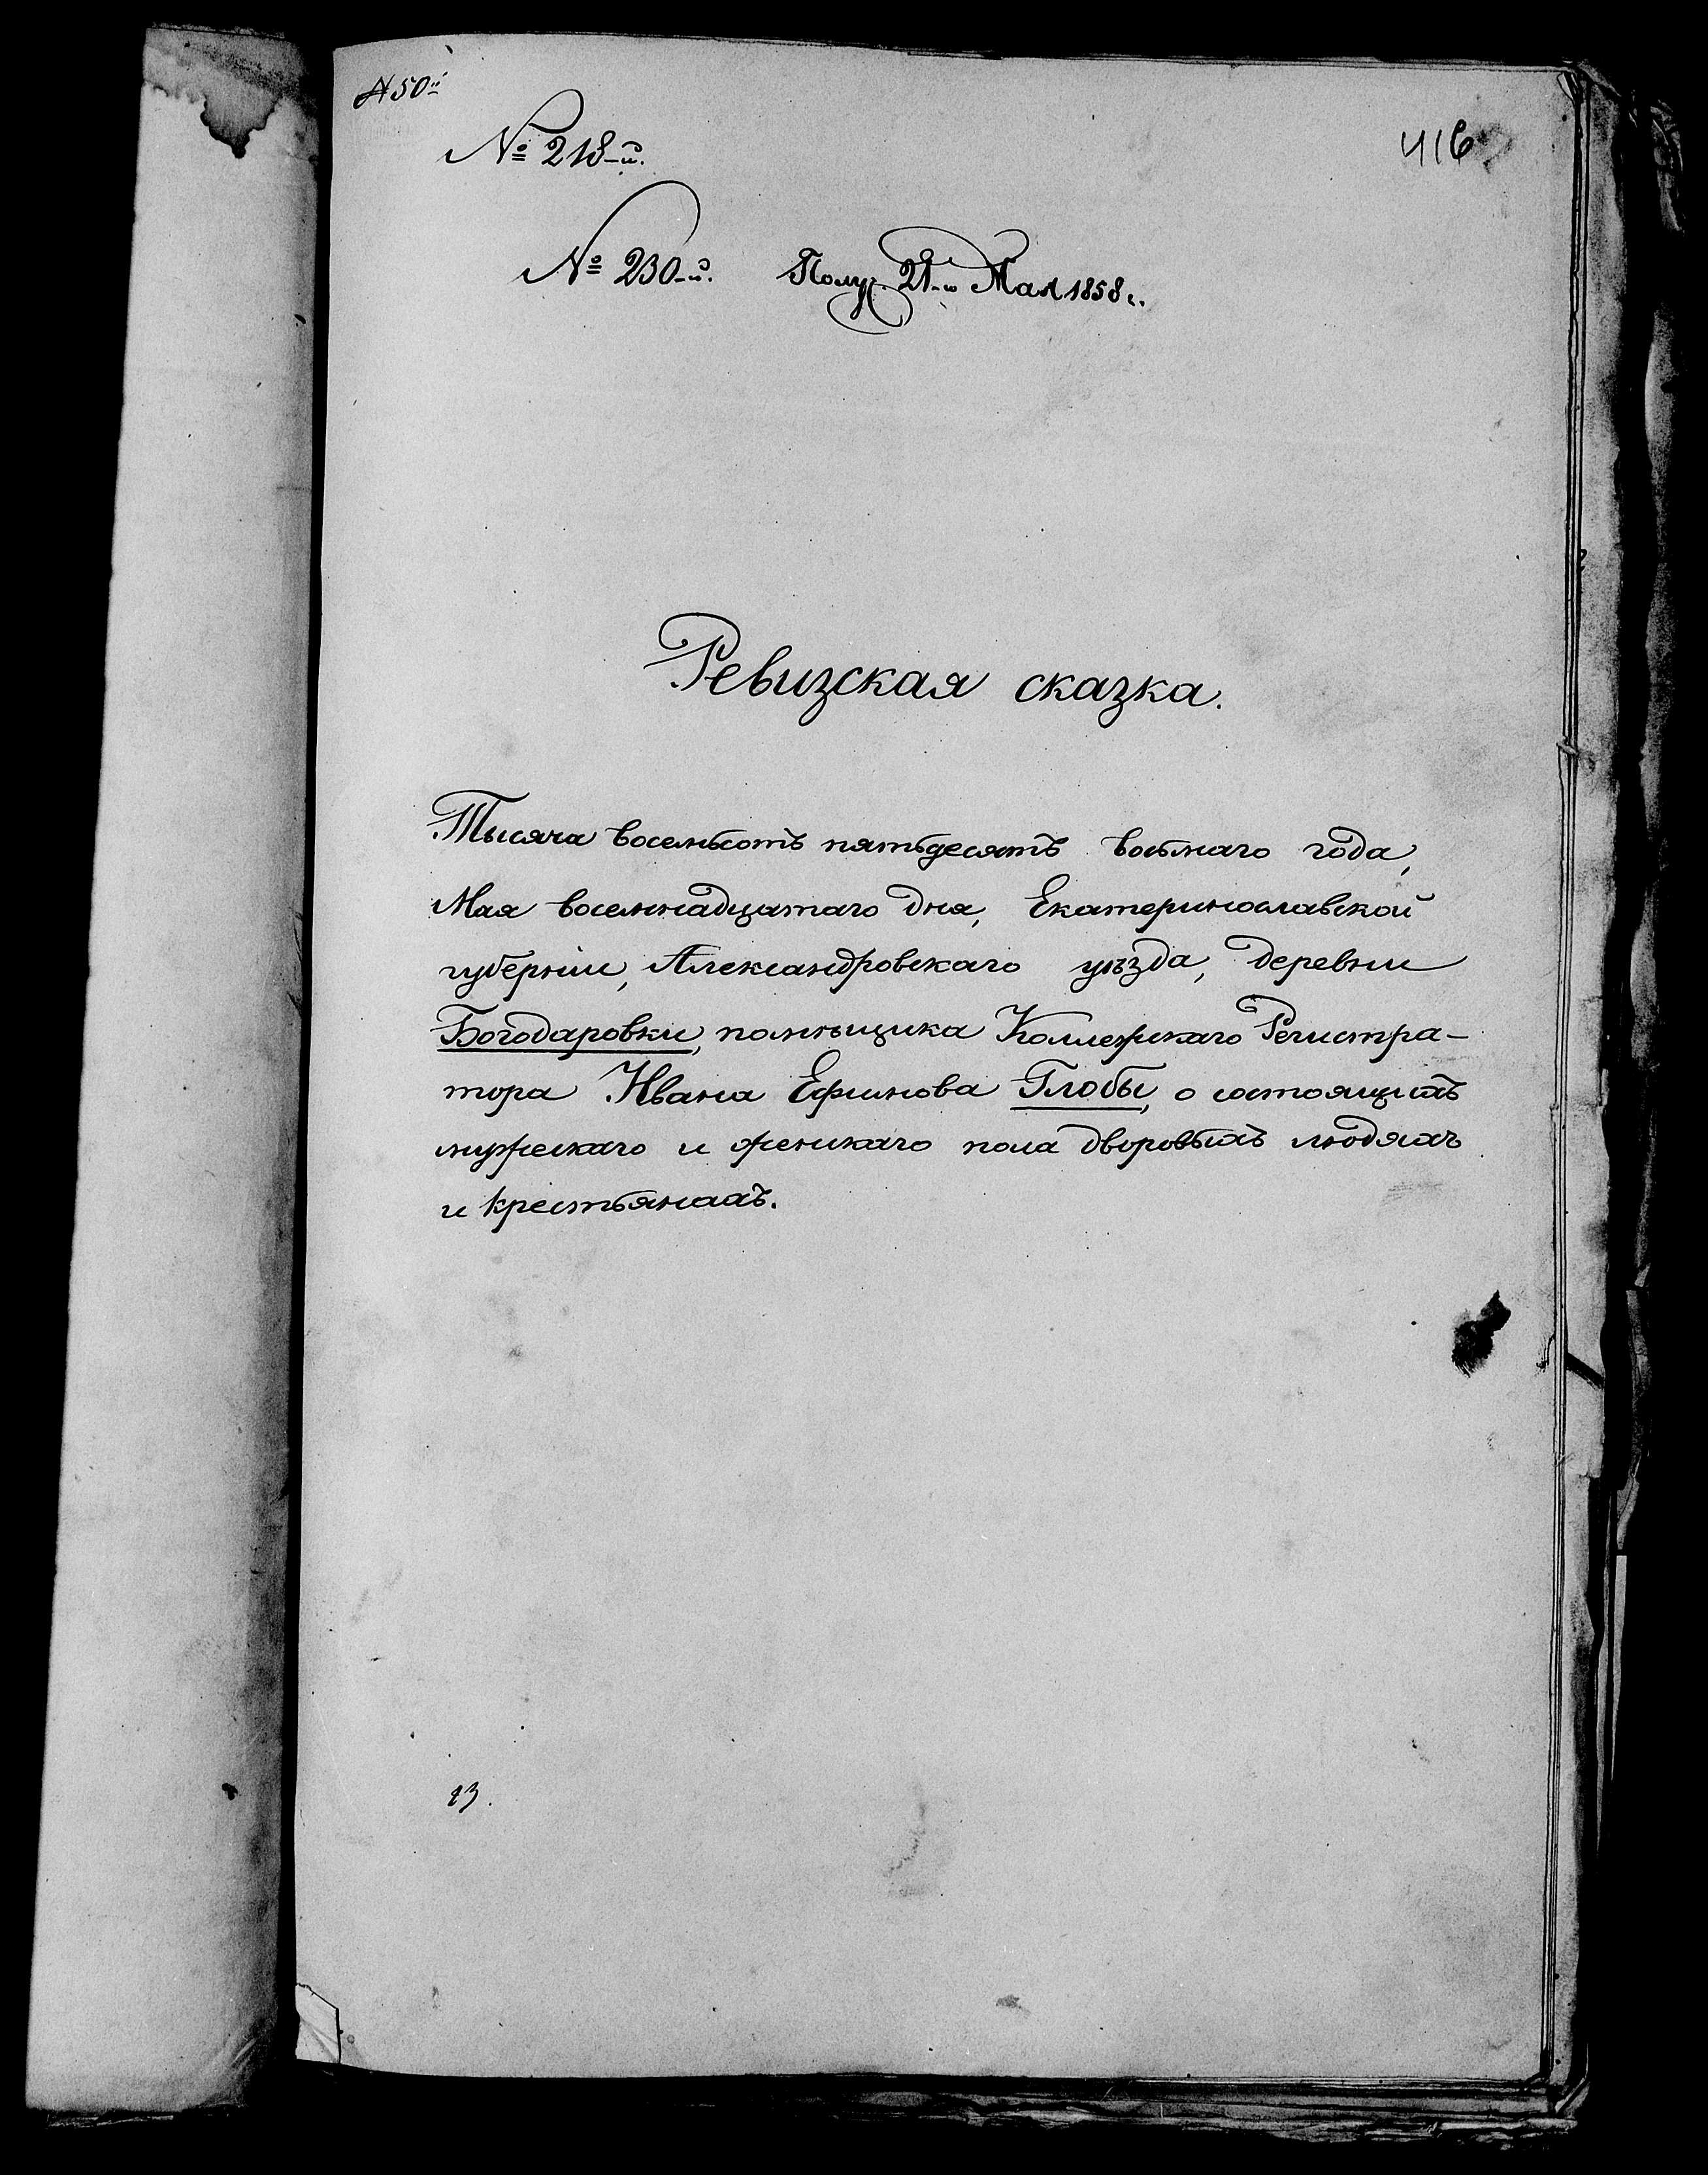 № 50й
№ 218-й.
416
№ 230-й. Получ. 21-го Мая 1858 г.
Ревизская сказка.
Тысяча восемьсотъ пятьдесятъ восьмаго года,
Мая восемнадцатаго дня, Екатеринославской
губерніи, Александровскаго уѣзда, деревни
Богодаровки, помѣщика Коллежскаго Регистра-
тора Ивана Ефимова Глобы, о состоящихъ
мужескаго и женскаго пола дворовыхъ людяхъ
и крестьянахъ.
13.